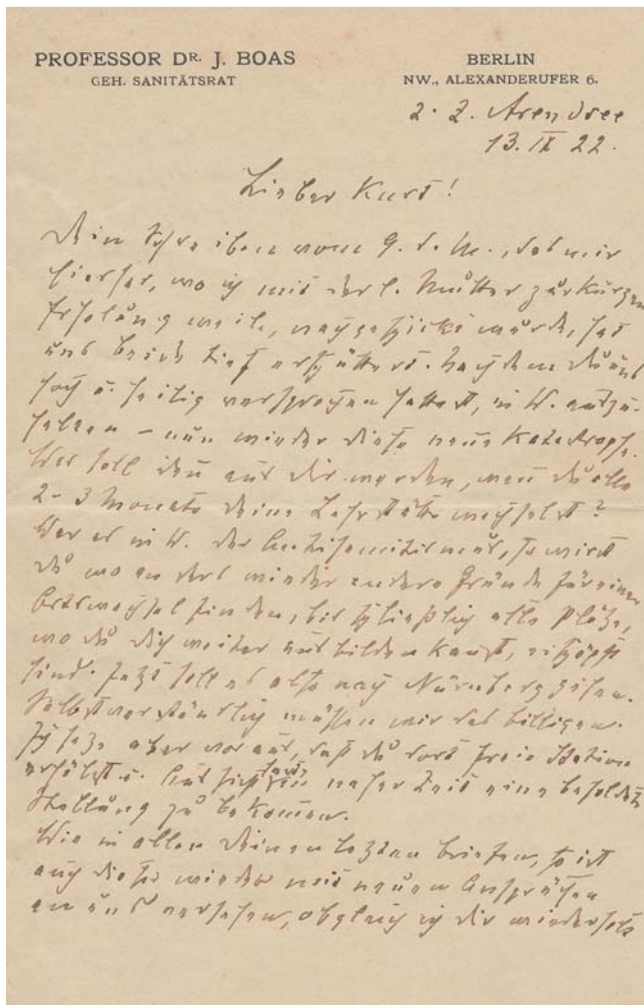 PROFESSOR DR. J. BOAS
GEH. SANITÄTSRAT
BERLIN
NW., ALEXANDERUFER 6.
z. Z. Arendsee
13. IX 22.
Lieber Kurt!
Dein Schreiben vom 9. d. M., das mir
hierher, wo ich mit der l. Mutter zur kurzen
Erholung weile, nachgeschickt wurde, hat
uns beide tief erschüttert. Nachdem du uns
hoch u. heilig versprochen hattest, in W. auszu-
halten – nun wieder diese neue Katastrophe.
Was soll denn aus dir werden, wenn du alle
2-3 Monate deine Lehrstätte wechselst?
War es in W. der Antisemitismus, so wirst
du wo anders wieder andere Gründe für einen
Ortswechsel finden, bis schließlich alle Plätze,
wo du dich weiter ausbilden kannst, erschöpft
sind. Jetzt soll es also nach Nürnberg gehen.
Selbstverständlich müssen wir das billigen.
Ich setze aber voraus, daß du dort freie Station
erhältst u. Aussicht hast, in naher Zeit eine besoldete
Stellung zu bekommen.
Wie in allen deinen letzten Briefen, so ist
auch dieser wieder mit neuen Ansprüchen
an uns versehen, obgleich ich dir wiederholt